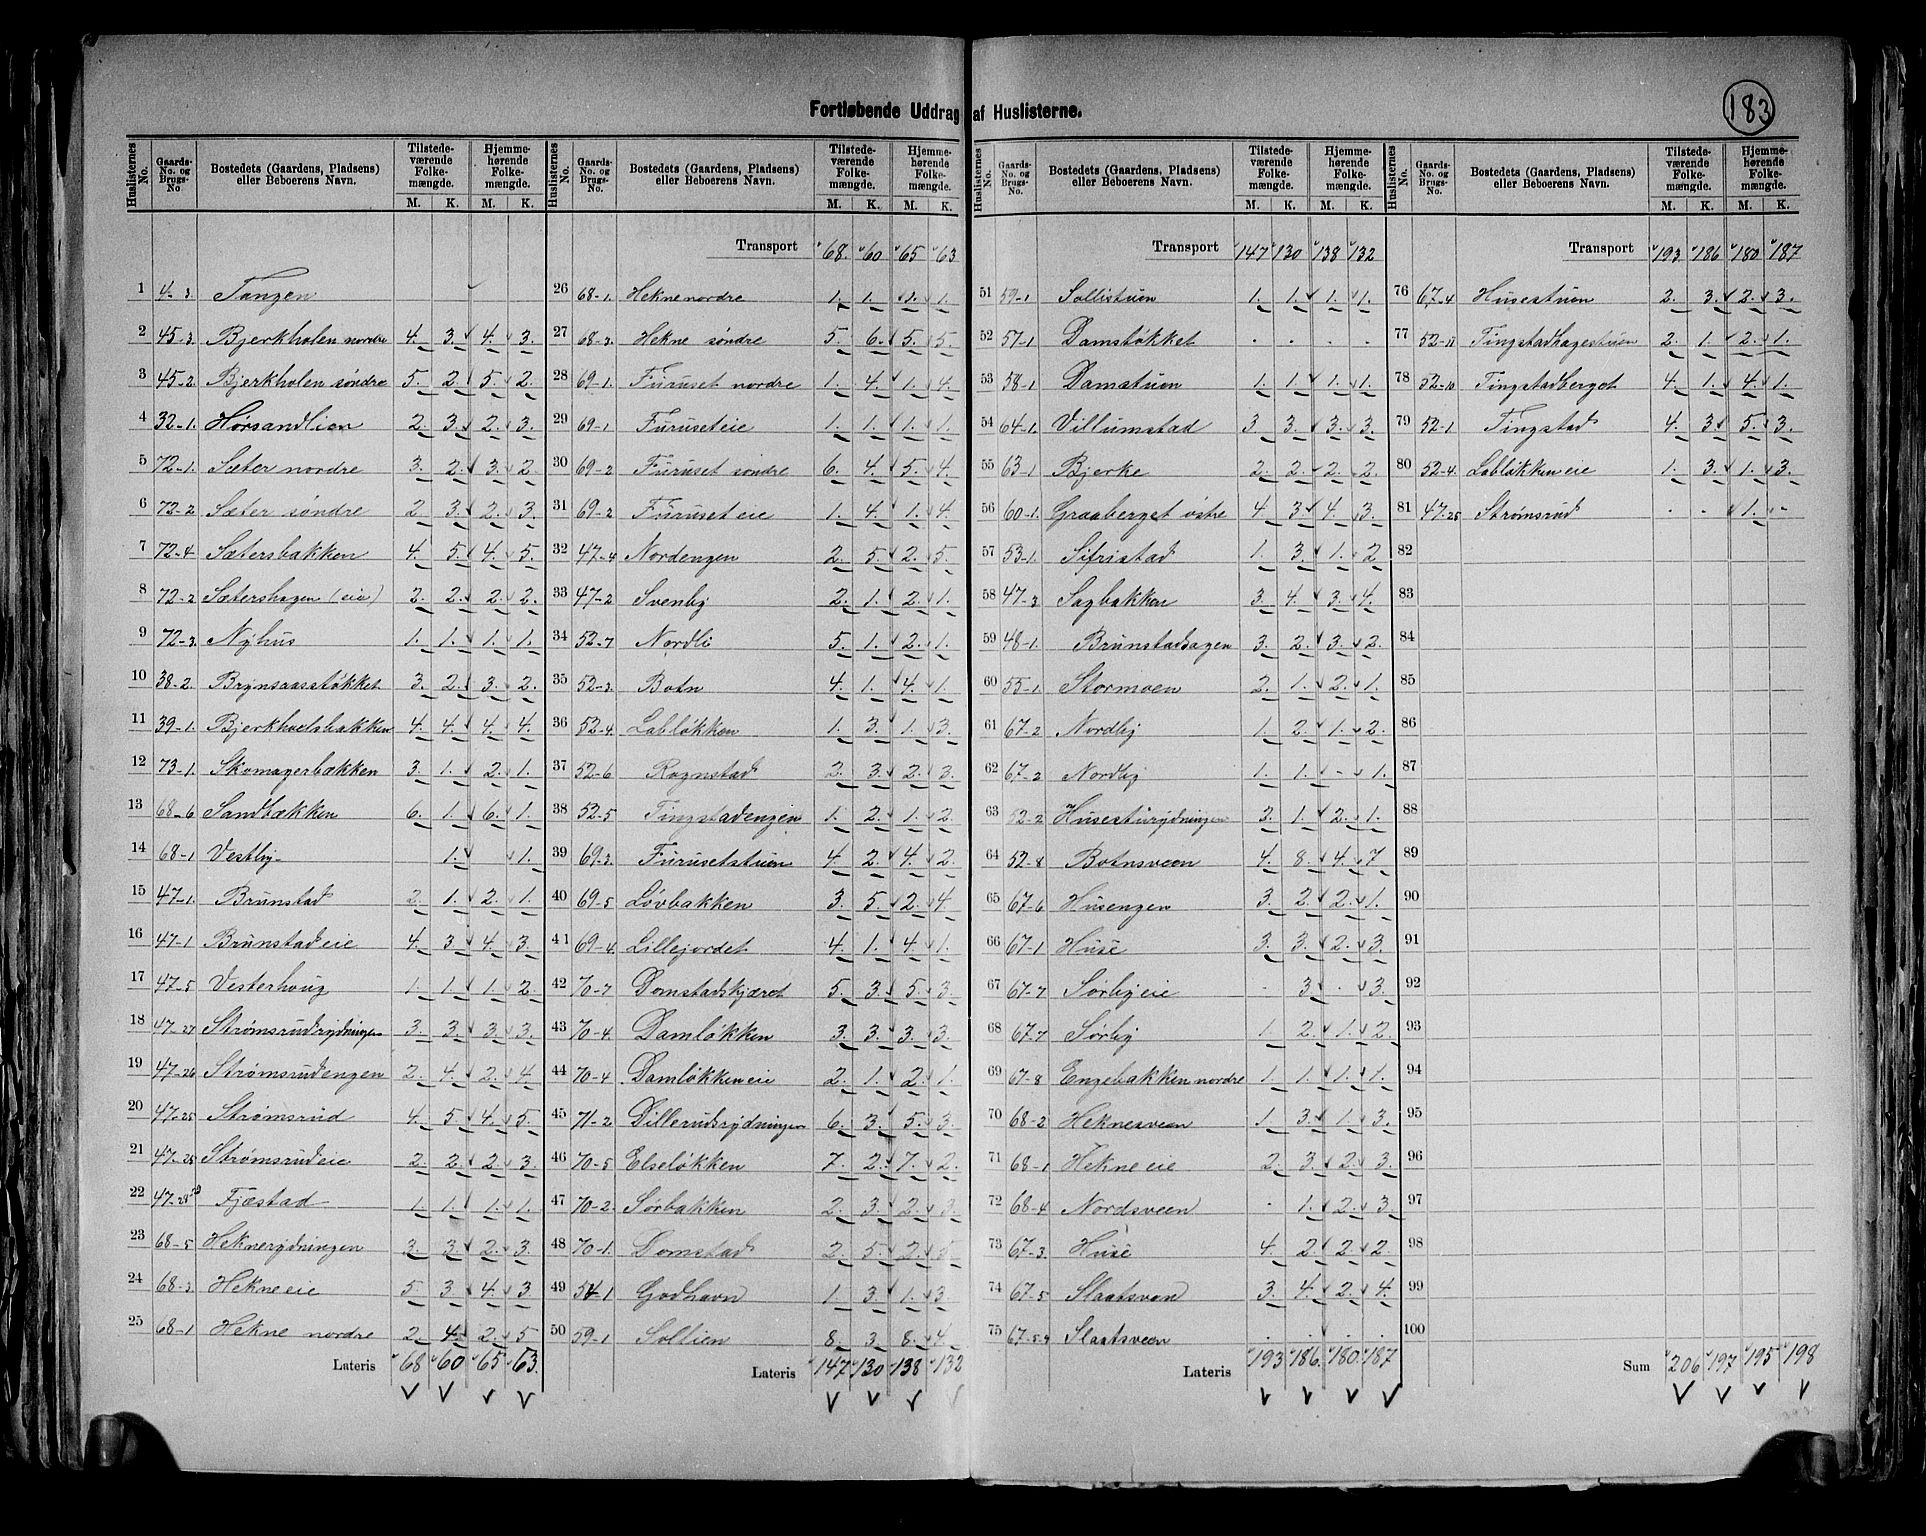 Fortløbende Uddrag af Huslisterne.
183
Huslisternes No. Gaards-No. og Brugs-No Bostedets (Gaardens, Pladsens) eller Beboerens Navn. Tilstedeværende Folkemængde. M. K. Hjemmehørende Folkemængde. M. K.
1 4-3 Tangen
2 45-3 Bjerkholen nordre 4. 3. 4. 3.
3 45-2 Bjerkholen søndre 5. 2. 5. 2.
4 32-1. Hørsandlien 2. 3. 2. 3.
5 72-1. Sæter nordre 3. 2. 3. 2.
6 72-2 Sæter søndre 2. 3. 2. 3.
7 72-4 Sætersbakken 4. 5. 4. 5.
8 72-2 Sætershagen (eie) 2. 2. 2. 2.
9 72-3. Nyhus 1. 1. 1. 1.
10 38-2. Brynsaasstøkket 3. 2. 3. 2.
11 39-1. Bjerkhoelsbakken 4. 4. 4. 4.
12 73-1. Skomagerbækken 3. 1. 2. 1.
13 68-6 Sandbækken 6. 1. 6. 1.
14 68-1 Vestby 1. 1.
15 47-1. Brunstad 2. 1. 2. 1.
16 47-1 Brunstadeie 4. 3. 4. 3.
17 47-5 Vesterhoug 1. 1. 1. 2.
18 47-27 Strømsrudrydningen 3. 3. 3. 3.
19 47-26 Strømsrudengen 2. 4. 2. 4.
20 47-25 Strømsrud 4. 5. 4. 5.
21 47-25 Strømsrudeie 2. 2. 2. 3.
22 47-28 Fjæstad 1. 1. 1. 1.
23 68-5 Heknerydningen 3. 3. 2. 3.
24 68-3 Hekneeie 5. 3. 4. 3.
25 68-1 Hekne nordre 2. 4. 2. 5
Lateris 68 60 65 63.
Huslisternes No. Gaards-No. og Brugs-No Bostedets (Gaardens, Pladsens) eller Beboerens Navn. Tilstedeværende Folkemængde. M. K. Hjemmehørende Folkemængde. M. K.
Transport 68. 60 65 63
26 68-1. Hekne nordre 1. 1. 1. 1.
27 68-3. Hekne søndre 5. 6. 5. 5.
28 69-1. Furuset nordre 1. 4. 1. 4.
29 69-1 Furuseteie 1. 1. 1. 1.
30 69-2 Furuset søndre 6. 4. 5. 4.
31 69-2 Furuseteie 1. 4. 1. 4.
32 47-4 Nordengen 2. 5. 2. 5.
33 47-2 Svenby 2. 1. 2. 1.
34 52-7 Nordli 5. 1. 2. 1.
35 52-3. Botn 4. 1. 4. 1.
36 52-4. Labløkken 1. 3. 1. 3.
37 52-6 Rognstad 2. 3. 2. 3.
38 52-5 Tingstadengen 1. 2. 1. 2
39 69-3. Furusetstuen 4. 2. 4. 2.
40 69-5 Løvbakken 3. 5. 2. 4.
41 69-4 Lillejordet 4. 1. 4. 1.
42 70-7 Domstadskjæret 5. 3. 5. 3.
43 70-4. Damløkken 3. 3. 3. 3.
44 70-4 Damløkkeneie 2. 1. 2. 1.
45 71-2. Dillerudsrydningen 6. 3. 5. 3.
46 70-5 Elseløkken 7. 2. 7. 2.
47 70-2. Sørbakken 2. 3. 2. 3.
48 70-1. Domstad 2. 5. 2. 5
49 54-1 Godhavn 1 3. 1. 3
50 59-1 Sollien 8. 3. 8. 4.
Lateris 147 130 138 132
Huslisternes No. Gaards-No. og Brugs-No. Bostedets (Gaardens, Pladsens) eller Beboerens Navn. Tilstedeværende Folkemængde. M. K. Hjemmehørende Folkemængde. M. K.
Transport 147 130 138 132
51 59-1 Sollistuen 1. 1. 1. 1.
52 57-1. Damstøkket . . . .
53 58-1 Damstuen 1. 1. 1. 1.
54 64-1. Villumstad 3 3. 3. 3.
55 63-1 Bjerke 2. 2. 2. 2.
56 60-1. Graaberget østre 4. 3 4. 3.
57 53-1. Sifristad 1. 3. 1. 2
58 47-3 Sagbakken 3. 4. 3. 4.
59 48-1. Brunstadsagen 3. 2. 3. 2.
60 55-1. Stormoen 2. 1. 2. 1.
61 67-2 Nordby 1. 2. 1. 2.
62 67-2 Nordby 1. 1. - 1.
63 52-2 Husesturydningen 3. 1. 2. 1.
64 52-8 Botnsveen 4. 8. 4. 7
65 67-6 Husengen 3. 2. 2. 1.
66 67-1 Huse 3. 3. 2. 3.
67 67-7 Sørbyeie . 3. . 3.
68 67-7 Sørby 1. 2. 1. 2
69 67-8 Engebakken nordre 1. 1. 1. 1.
70 68-2 Heknesveen 1. 3. 1. 3.
71 68-1 Hekneeie 2. 3. 2. 3.
72 68-4 Nordsveen . 1. 2. 3.
73 67-3. Huse 4. 2. 2. 2.
74 67-5 Slaatsveen 3. 4. 2. 4.
75 67-5.9 Slaatsveen . . . .
Lateris 193 186. 180. 187
Huslisternes No. Gaards-No. og Brugs-No. Bostedets (Gaardens, Pladsens) eller Beboerens Navn. Tilstedeværende Folkemængde. M. K. Hjemmehørende Folkemængde. M. K.
Transport 193. 186 180 187
76 67-4 Husestuen 2. 3. 2. 3.
77 52-11 Tingstadhagestuen 2. 1. 2. 1.
78 52-10 Tingstadberget 4. 1. 4. 1.
79 52-1 Tingstad 4. 3 5. 3.
80 52-4. Labløkkeneie 1. 3. 1. 3.
81 47-25 Strømsrud . . 1. -
82
83
84
85
86
87
88
89
90
91
92
93
94
95
96
97
98
99
100
Sum 206 197 195 198